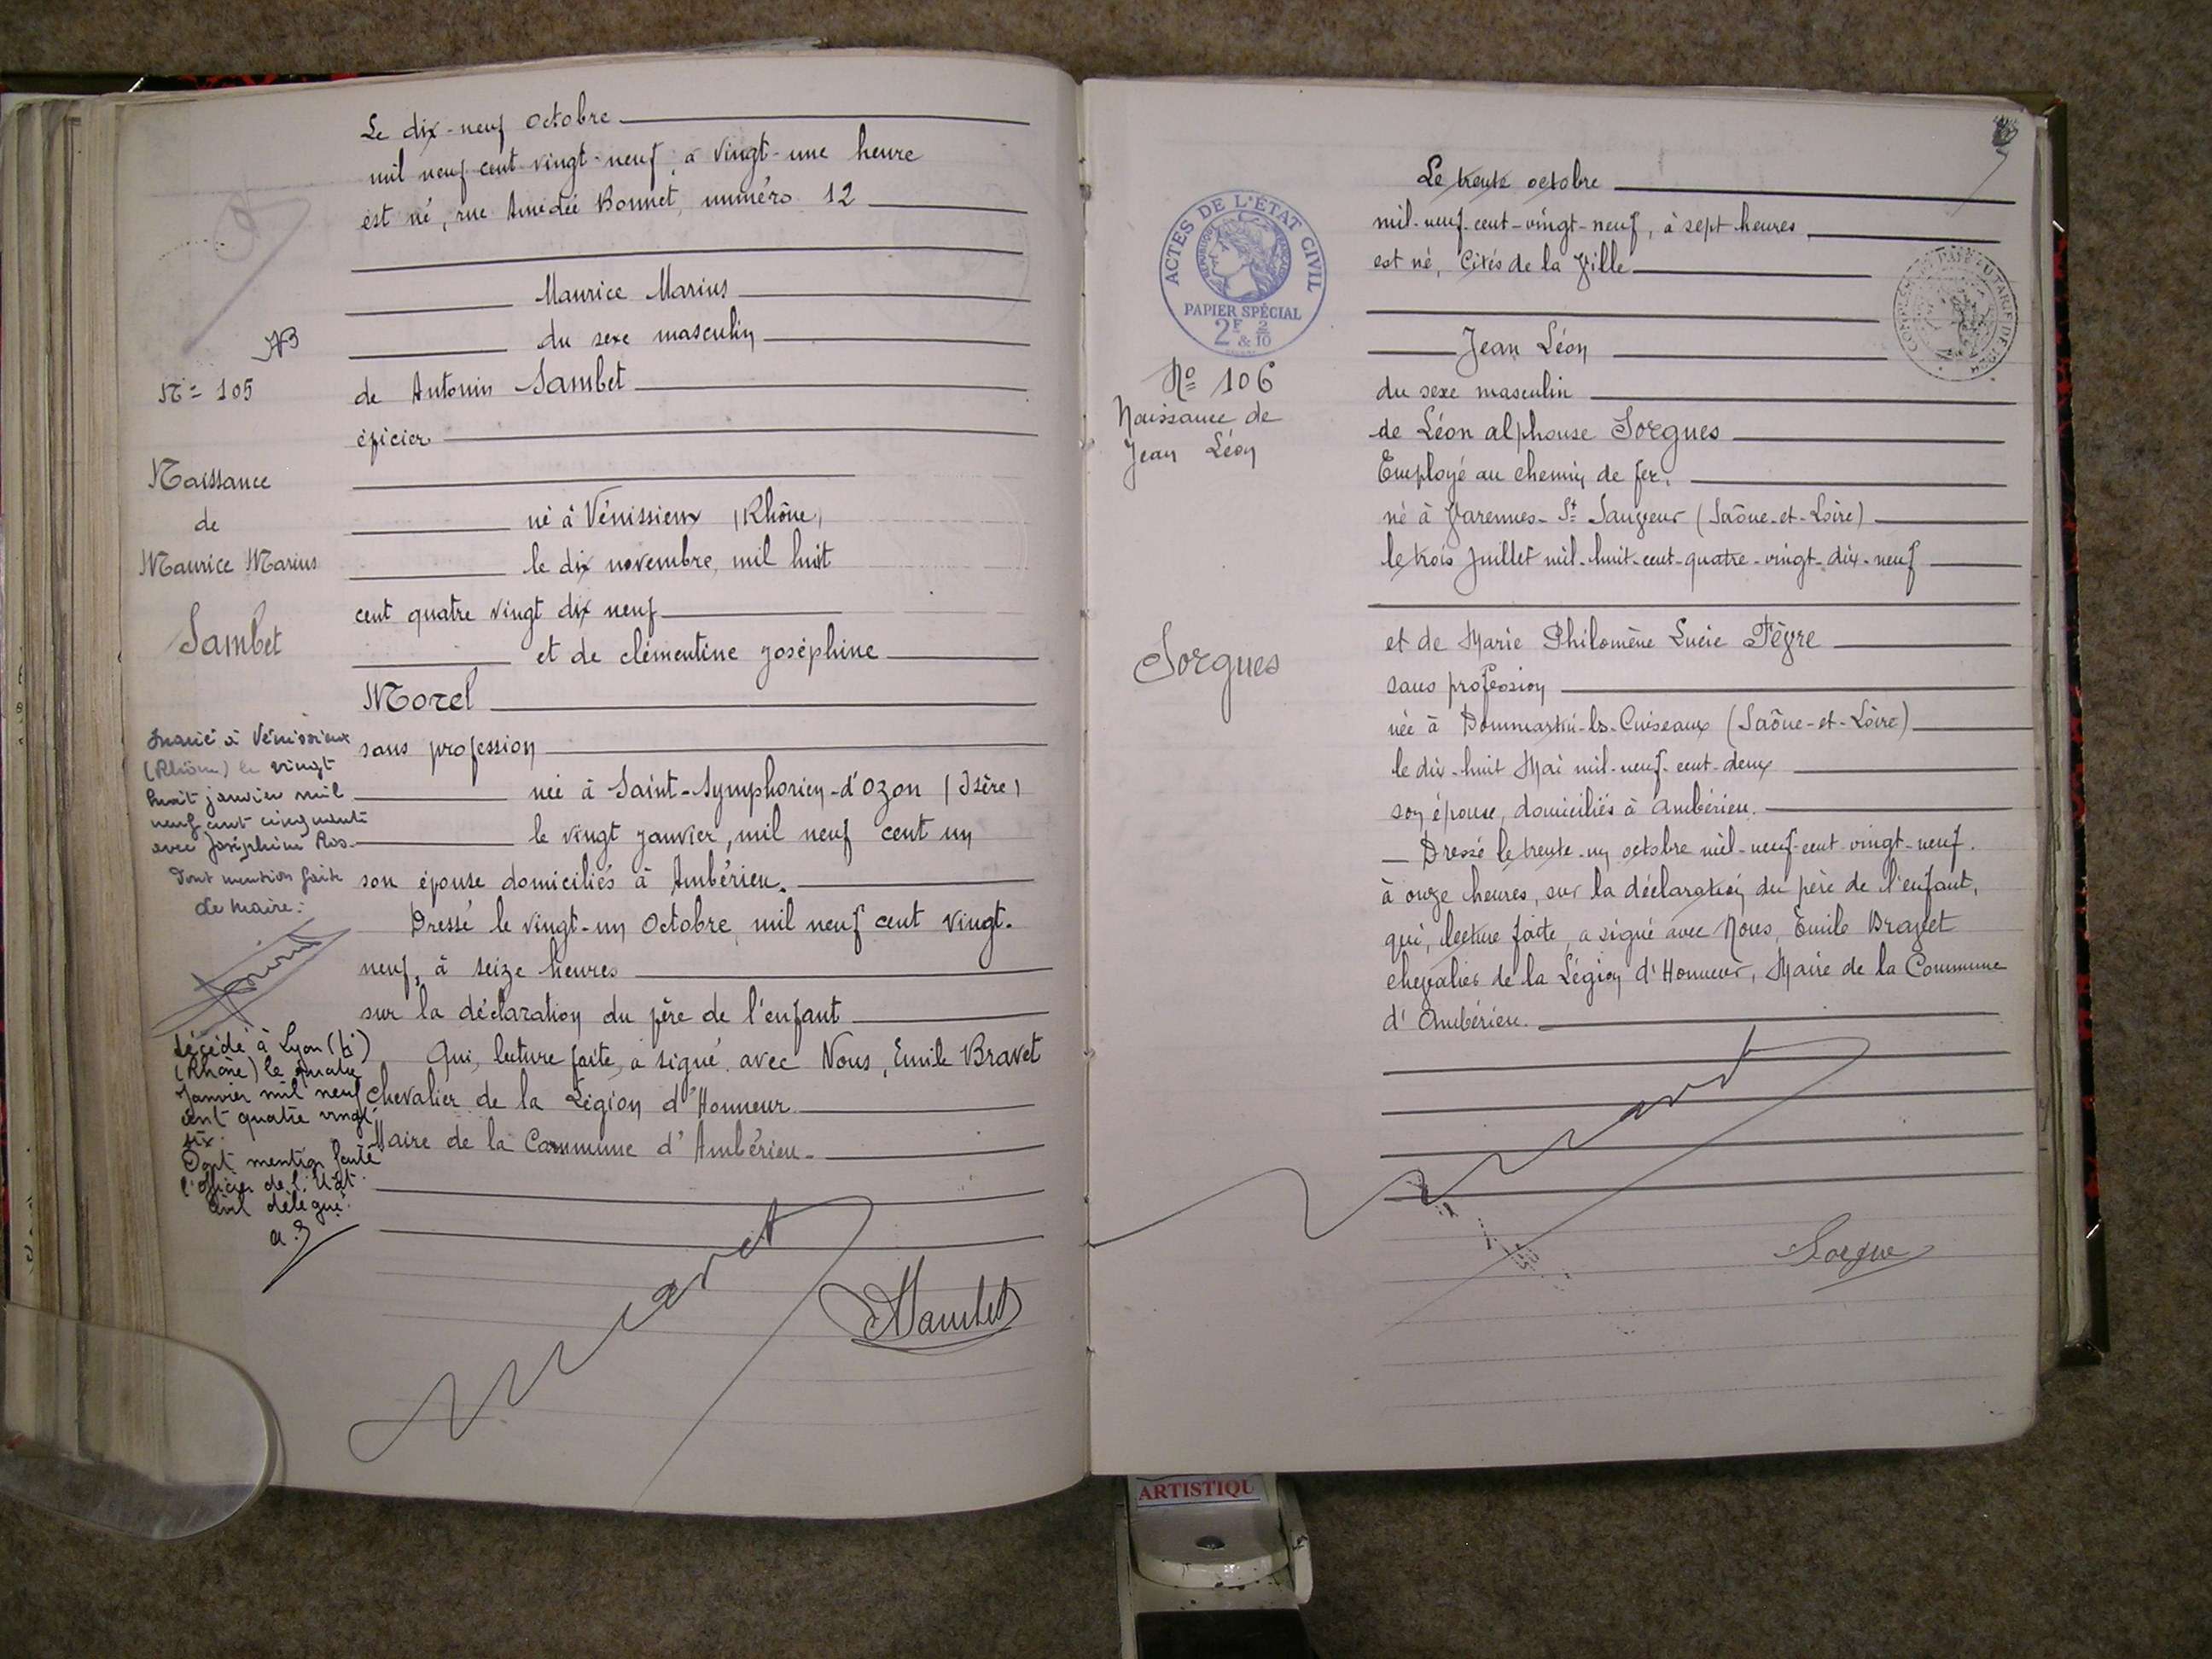 Le dix-neuf octobre
mil neuf cent vingt-neuf, à vingt-une heure
est né, rue Amédée Bonnet, numéro 12
Maurice Marius
du sexe masculin
N= 105
de Antonin Sambet
épicier
Naissance
de
Maurice Marius
Sambet
né à Vénissieux (Rhône)
le dix novembre, mil huit
cent quatre vingt dix neuf
et de clémentine joséphine
Morel
sans profession
née à Saint-Symphorien-d'Ozon (Isère)
le vingt janvier, mil neuf cent un
son épouse domiciliés à Ambérieu.
Dressé le vingt-un Octobre, mil neuf cent vingt-
neuf, à seize heures
sur la déclaration du père de l'enfant
Qui, lecture faite, a signé avec Nous, Emile Bravet
chevalier de la Légion d'Honneur
Maire de la Commune d'Ambérieu.
Marié à Vénissieux
(Rhône) le vingt
huit janvier mil
neuf cent cinquante
avec Joséphine Ros
Dont mention faite
Le Maire:
Décédé à Lyon
(Rhône) le quatre
Janvier mil neuf
cent quatre vingt
six.
Dont mention faite
l'officier de l'Etat
Civil délégué
Sambet
ACTES DE L'ÉTAT CIVIL
RÉPUBLIQUE FRANÇAISE
PAPIER SPÉCIAL
2F & 2/10
No 106
Naissance de
Jean Léon
Sorgues
Le trente octobre
mil-neuf-cent-vingt-neuf, à sept heures
est né, Cités de la Ville
Jean Léon
du sexe masculin
de Léon alphonse Sorgues
Employé au chemin de fer,
né à Varennes-St Sauveur (Saône-et-Loire)
le trois Juillet mil-huit-cent-quatre-vingt-dix-neuf
et de Marie Philomène Lucie Fèvre
sans profession
née à Dommartin-ls-Cuiseaux (Saône-et-Loire)
le dix-huit Mai mil-neuf-cent-deux
son épouse, domiciliés à Ambérieu.
Dressé le trente-un octobre mil-neuf-cent-vingt-neuf.
à onze heures, sur la déclaration du père de l'enfant,
qui, lecture faite, a signé avec Nous, Emile Bravet
chevalier de la Légion d'Honneur, Maire de la Commune
d'Ambérieu.
Sorgue
ARTISTIQU